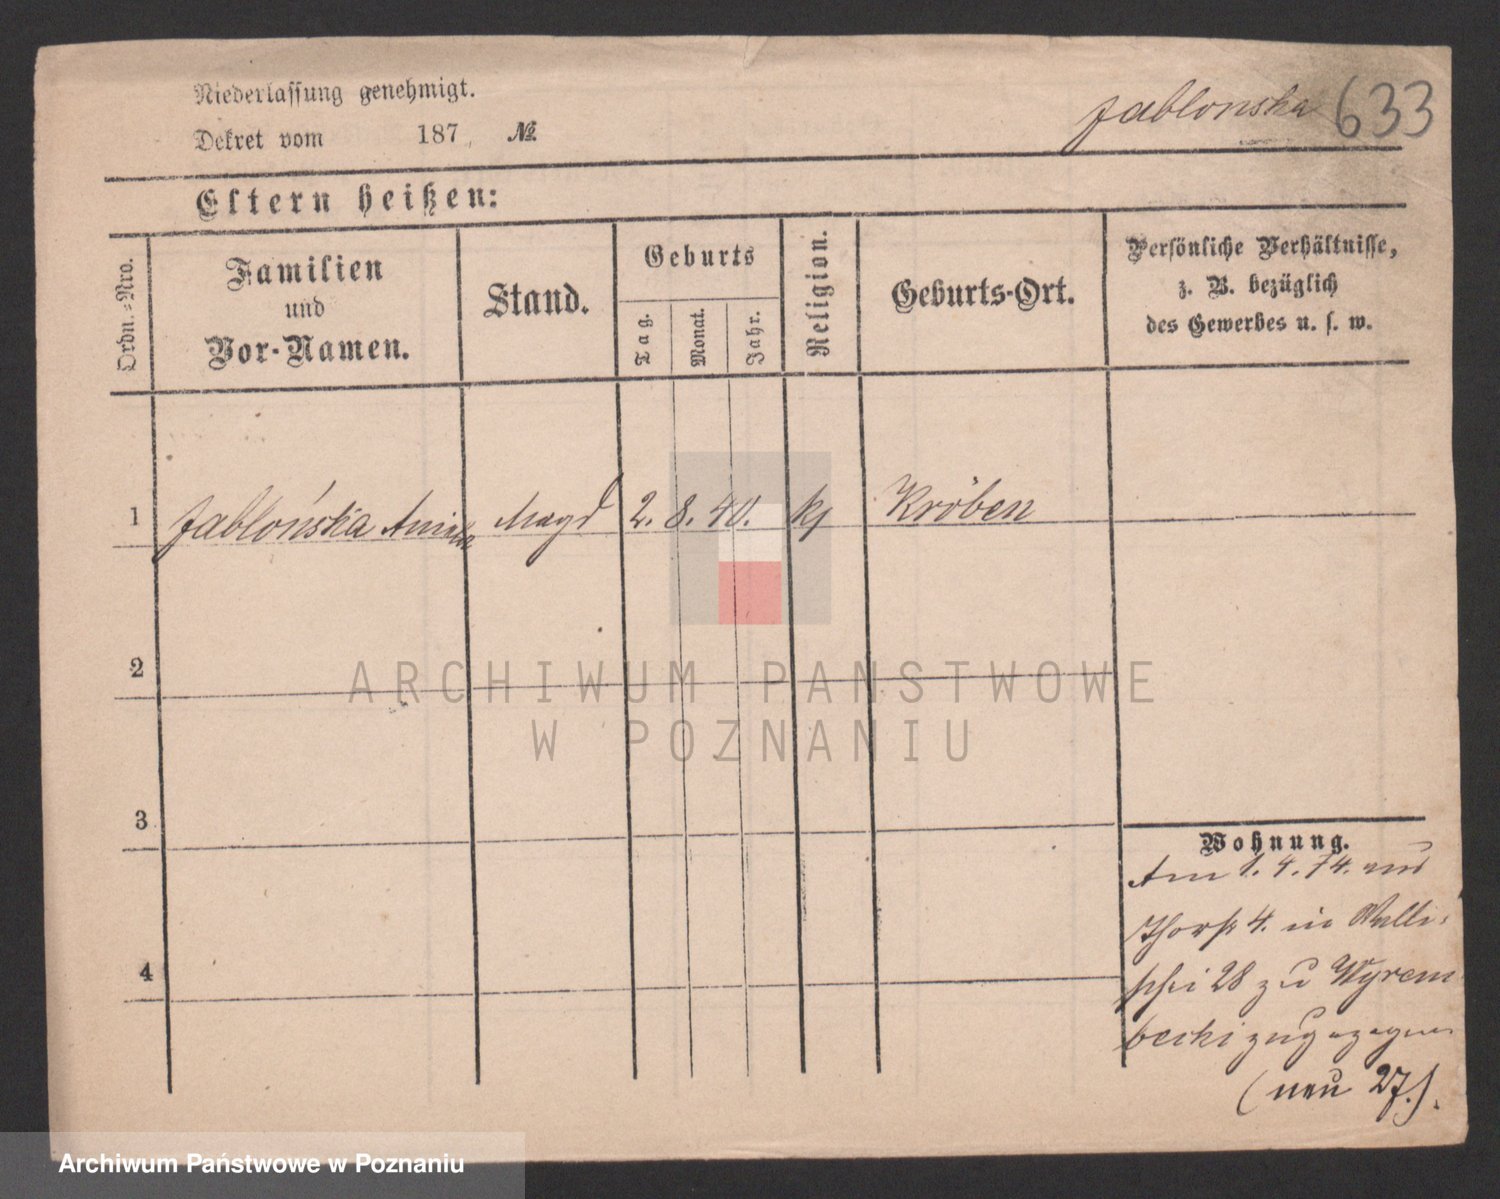 Niederlassung genehmigt.
Dekret vom 187 , №
Jablonska 633
Eltern heißen:
Ordn.-Nro.
Familien
und
Vor-Namen.
Stand.
Geburts
Tag.
Monat.
Jahr.
Religion.
Geburts-Ort.
Persönliche Verhältnisse,
z. B. bezüglich
des Gewerbes u. s. w.
1 Jabłońska Magd 2. 8. 40. kj Kröben
2
3
4
Wohnung.
Am 1. 4. 74. aus
4. in Walli-
schei 28 zu Wyrem
becki zugezogen
(neu 27.).
ARCHIWUM PAŃSTWOWE
W POZNANIU
Archiwum Państwowe w Poznaniu